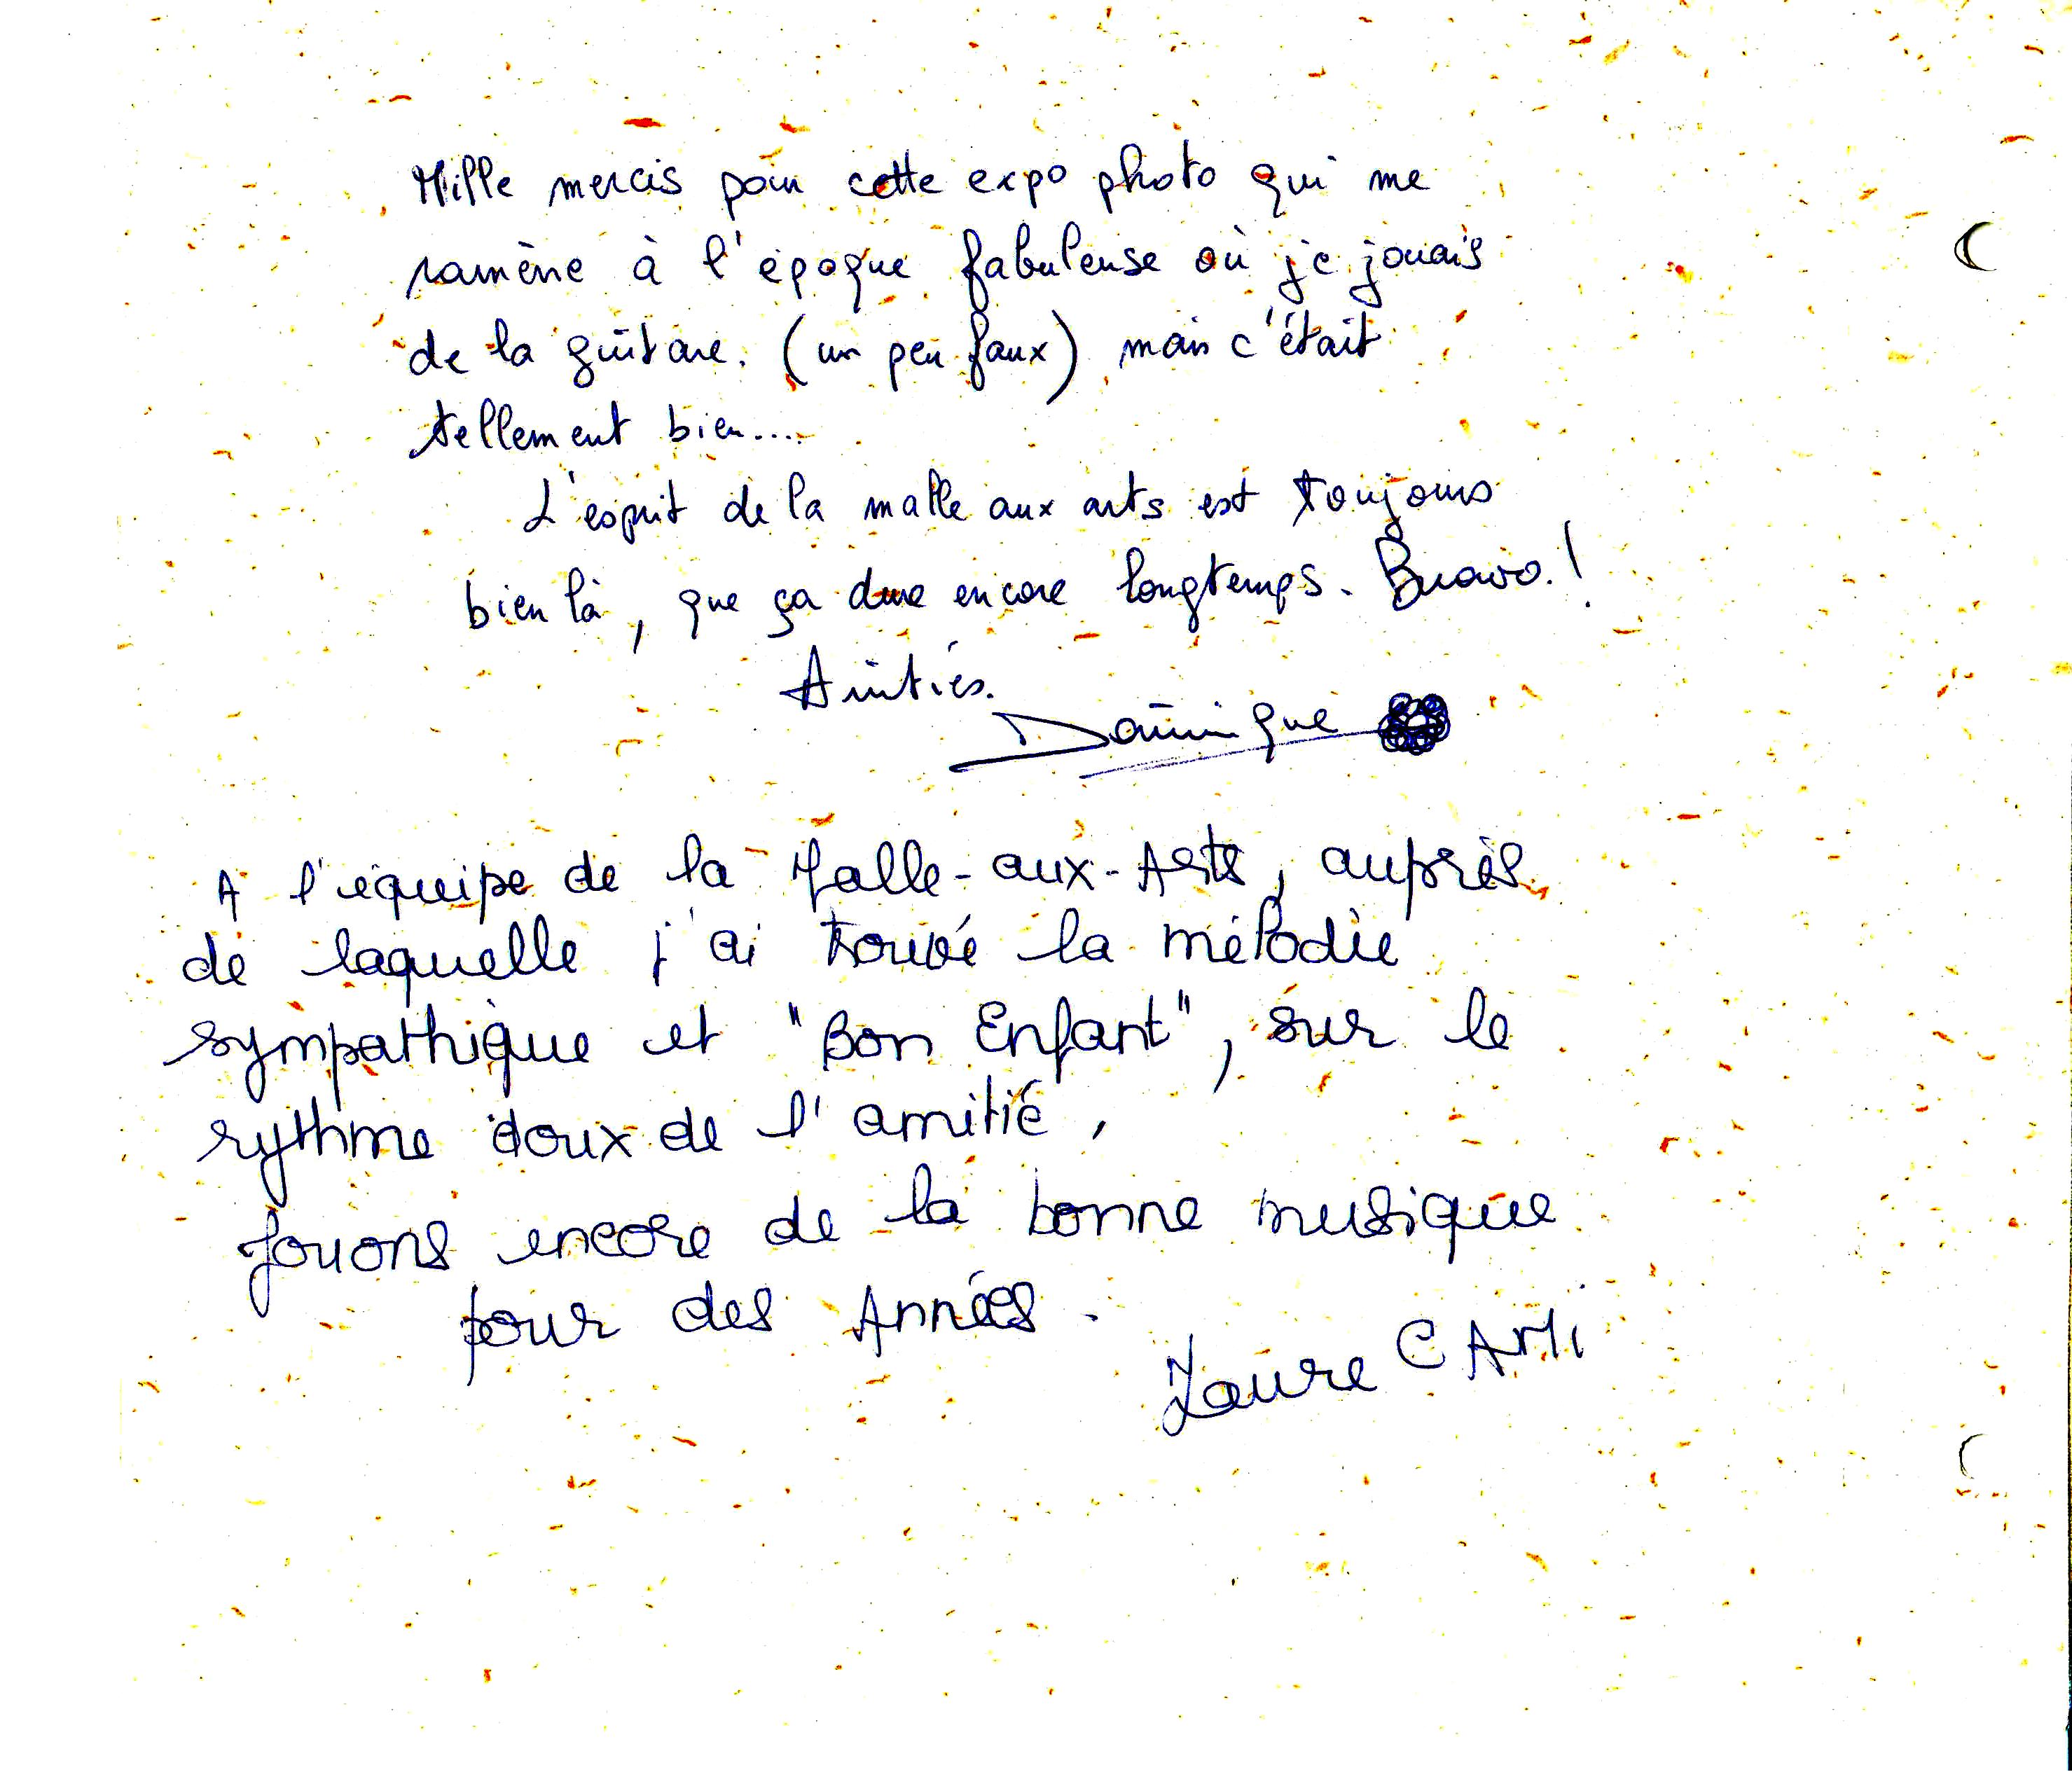 Mille mercis pour cette expo photo qui me
ramène à l'époque fabuleuse où je jouais
de la guitare. (un peu faux) mais c'était
tellement bien....
L'esprit de la malle aux arts est toujours
bien là, que ça dure encore longtemps. Bravo.!
Amitiés.
Dominique
A l'équipe de la Malle-aux-Arts, auprès
de laquelle j'ai trouvé la mélodie
sympathique et "Bon Enfant", sur le
rythme doux de l'amitié,
Jouons encore de la bonne musique
pour des Années.
Laure